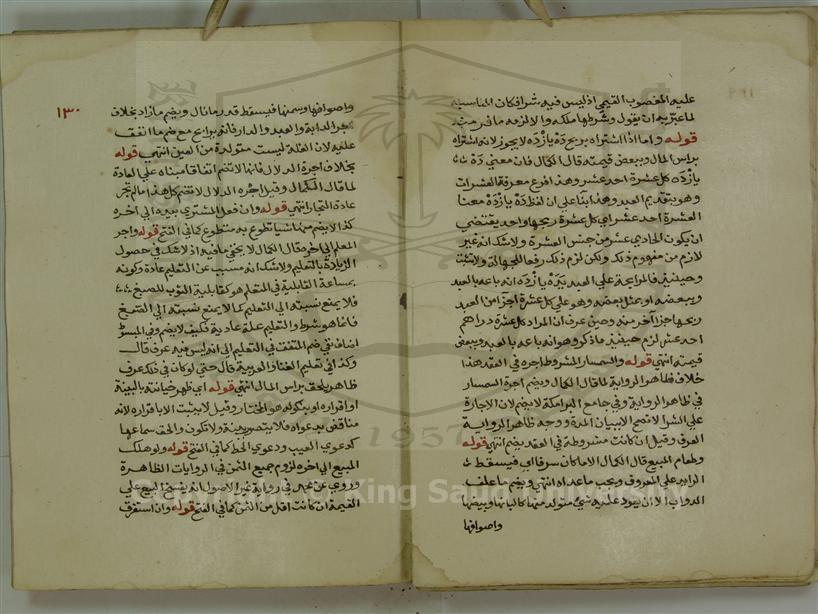 عليه المغصوب القيمي اذ ليس فيه شرا فكان المناسب
لما عبر به ان يقول وشرطها ملكه والا لزمه ما فر منه
قوله واما اذا اشتراه بربح ده يازده لا يجوز لانه اشتراه
براس المال وببعض قيمته قال الكمال فان معنى ده
يازده كل عشرة احد عشر وهذا فرع معرفة العشرات
وهو بتقديم العبد وهذا بناء على ان لفظ ده يازده معناه
العشرة احد عشر اي كل عشرة ربحها واحد يقتضي
ان يكون الحادي عشر من جنس العشرة ولا شك انه غير
لازم من مفهوم ذلك ولكن لزم ذلك رفعا للجهالة ولا تثبت
وحينئذ فالمرابحة على العبد بده يازده انه باعه بالعبد
وببعضه او بمثل بعضه وهو على كل عشرة اجزا من العبد
ربحها جزا آخر منه وحين عرف ان المراد كل عشرة دراهم
احد عشر لزم حينئذ ما ذكر وهو انه باعه بالعبد وببعض
قيمته انتهى قوله والسمسار المشروط اجره في العقد هذا
خلاف ظاهر الرواية لما قال الكمال ويضم اجرة السمسار
في ظاهر الرواية وفي جامع البرامكة لا يضم لان الاجارة
على الشرا لا تصح الا ببيان المدة ووجه ظاهر الرواية
العرف وقيل ان كانت مشروطة في العقد يضم انتهى قوله
وطعام المبيع قال الكمال الا ما كان سرفا اي فيسقط
الزايد على المعروف ويحب ما عداه انتهى ويضم ما علف
الدواب الا ان يعود عليه شي متولد منها كالبانها وبيضها
واصوافها
١٣٠
واصوافها وسمنها فيسقط قدر ما نال ويضم ما زاد بخلاف
اجر الدابة والعبد والدار فانه يرابح مع ضم ما انفق
عليه لان الغلة ليست متولدة من العين انتهى قوله
بخلاف اجرة الدلال فانها لا تضم اتفاقا مبناه على العادة
لما قال الكمال وقيل اجرة الدلال لا تضم كل هذا ما لم تجر
عادة التجار انتهى قوله وان فعل المشتري بيده الى آخره
كذا لا يضم مما شيا تطوع به متطوع كما في الفتح قوله واجر
المعلم الى آخره قال الكمال لا يخفى ما فيه اذ لا شك في حصول
الزيادة بالتعليم ولا شك انه مسبب عن التعليم عادة وكونه
بمساعدة القابلية في المتعلم هو كقابلية الثوب للصبغ
فلا يمنع نسبته الى التعليم كما لا يمنع نسبته الى الصبغ
فانما هو شرط والتعليم علة عادية فكيف لا يضم وفي المبسوط
اضاف نفي ضم المنفق في التعليم الى انه ليس فيه عرف قال
وكذا في تعليم الغنا والعربية قال حتى لو كان في ذلك عرف
ظاهر يلحق براس المال انتهى قوله اي ظهر خيانته بالبينة
او اقراره او بنكوله هو المختار وقيل لا يثبت الا باقراره لانه
مناقض بدعواه فلا يتصور بينة ولا نكول والحق سماعها
كدعوى العيب ودعوى الحط كما في الفتح قوله ولو هلك
المبيع الى اخره لزوم جميع الثمن في الروايات الظاهرة
وروي عن محمد في رواية غير الاصول انه يفسخ البيع على
القيمة ان كانت اقل من الثمن كما في الفتح قوله وان استغرق
Copyright © King Saud University
1957